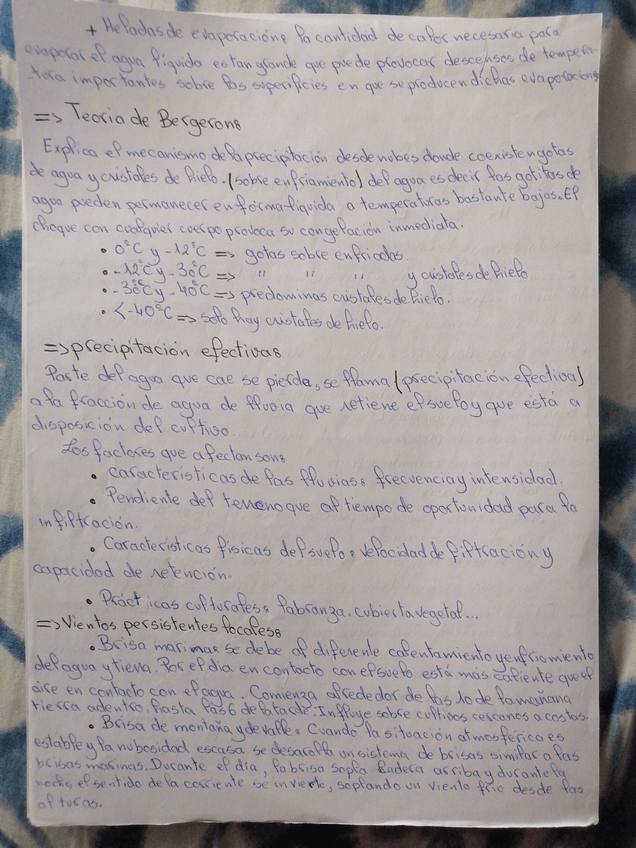 + Heladas de evaporación: la cantidad de calor necesaria para
evaporar el agua líquida es tan grande que puede provocar descensos de tempera-
tura importantes sobre las superficies en que se producen dichas evaporaciones
=> Teoria de Bergeron:
Explica el mecanismo de la precipitación desde nubes donde coexisten gotas
de agua y cristales de hielo. (sobre enfriamiento) del agua es decir las gotitas de
agua pueden permanecer en forma liquida a temperaturas bastante bajas. El
choque con cualquier cuerpo provoca su congelación inmediata.
• 0°C y -12°C => gotas sobre enfriadas.
• -12°C y -30°C => " " " y cristales de hielo
• -30°C y -40°C => predominas cristales de hielo.
• <-40°C => solo hay cristales de hielo.
=> precipitación efectiva:
Parte del agua que cae se pierda, se llama (precipitación efectiva)
a la fracción de agua de lluvia que retiene el suelo y que está a
disposición del cultivo.
Los factores que afectan son:
• Características de las lluvias: frecuencia y intensidad.
• Pendiente del terreno que al tiempo de oportunidad para la
infiltración.
• Características físicas del suelo: velocidad de filtración y
capacidad de retención.
• Prácticas culturales: labranza. cubierta vegetal...
=> Vientos persistentes locales:
• Brisa marina: se debe al diferente calentamiento y enfriamiento
del agua y tierra. Por el día en contacto con el suelo está mas caliente que el
aire en contacto con el agua. Comienza alrededor de las 10 de la mañana
tierra adentro. hasta las 6 de la tarde. Influye sobre cultivos cercanos a costas.
• Brisa de montaña y de valle: Cuando la situación atmosférica es
estable y la nubosidad escasa se desarolla un sistema de brisas similar a las
brisas marinas. Durante el día, la brisa sopla ladera arriba y durante la
noche el sentido de la corriente se invierte, soplando un viento frio desde las
alturas.